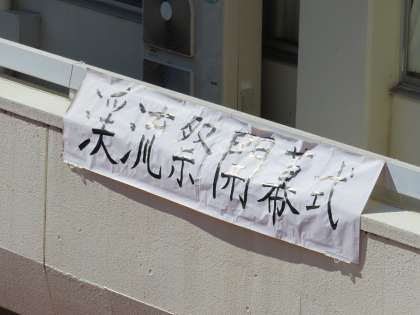 渓流祭開幕式